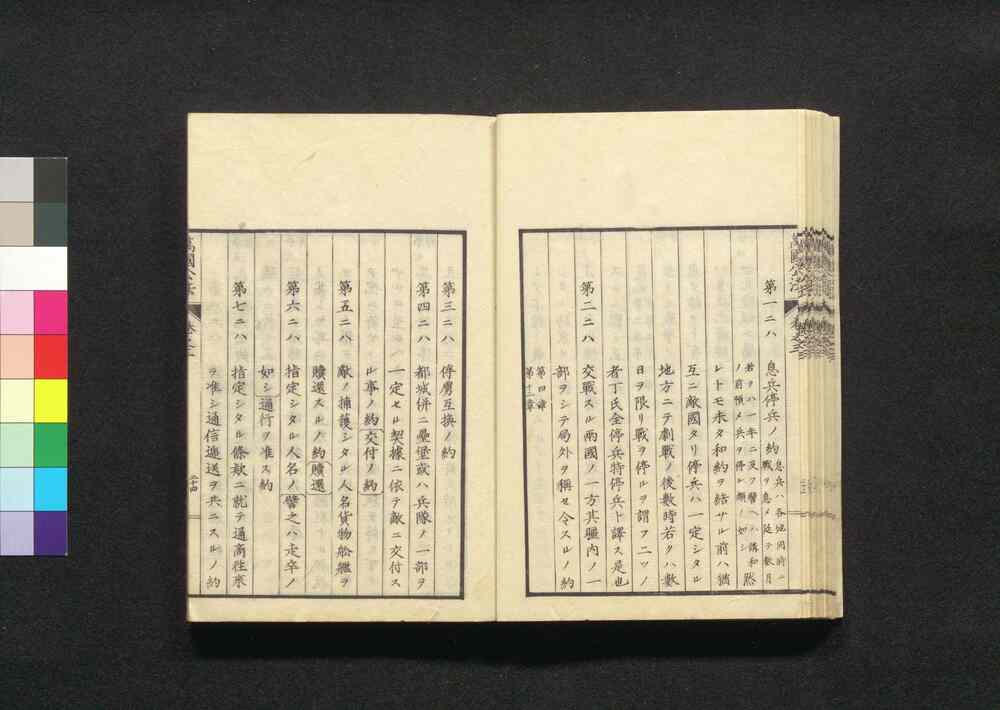 萬國公法
第一ニハ
息兵停兵ノ約
息兵ハ各地同時ニ
戰ヲ息メ延テ數月
若クハ一年ニ及フ譬ヘハ講和
ノ前預メ兵ヲ停ル類ノ如シ然
レトモ未タ和約ヲ結サル前ハ猶
互ニ敵國タリ停兵ハ一定シタル
地方ニテ劇戰ノ後數時若クハ數
日ヲ限リ戰ヲ停ルヲ謂フ二ツノ
者丁氏全停兵特停兵ト譯ス是也
第二ニハ
交戰スル兩國ノ一方其疆內ノ一
部ヲシテ局外ヲ稱セ令スルノ約
第四章
第十二章
第三ニハ
俘虜互換ノ約
第四ニハ
都城併ニ壘堡或ハ兵隊ノ一部ヲ
一定セル契據ニ依テ敵ニ交付ス
ル事ノ約交付ノ約
第五ニハ
敵ノ捕獲シタル人名貨物船艦ヲ
贖還スルノ約贖還
第六ニハ
指定シタル人名ノ譬之ハ走卒ノ
如シ通行ヲ准ス約
第七ニハ
指定シタル條款ニ就テ通商往來
ヲ准シ通信遞送ヲ共ニスルノ約
萬國公法